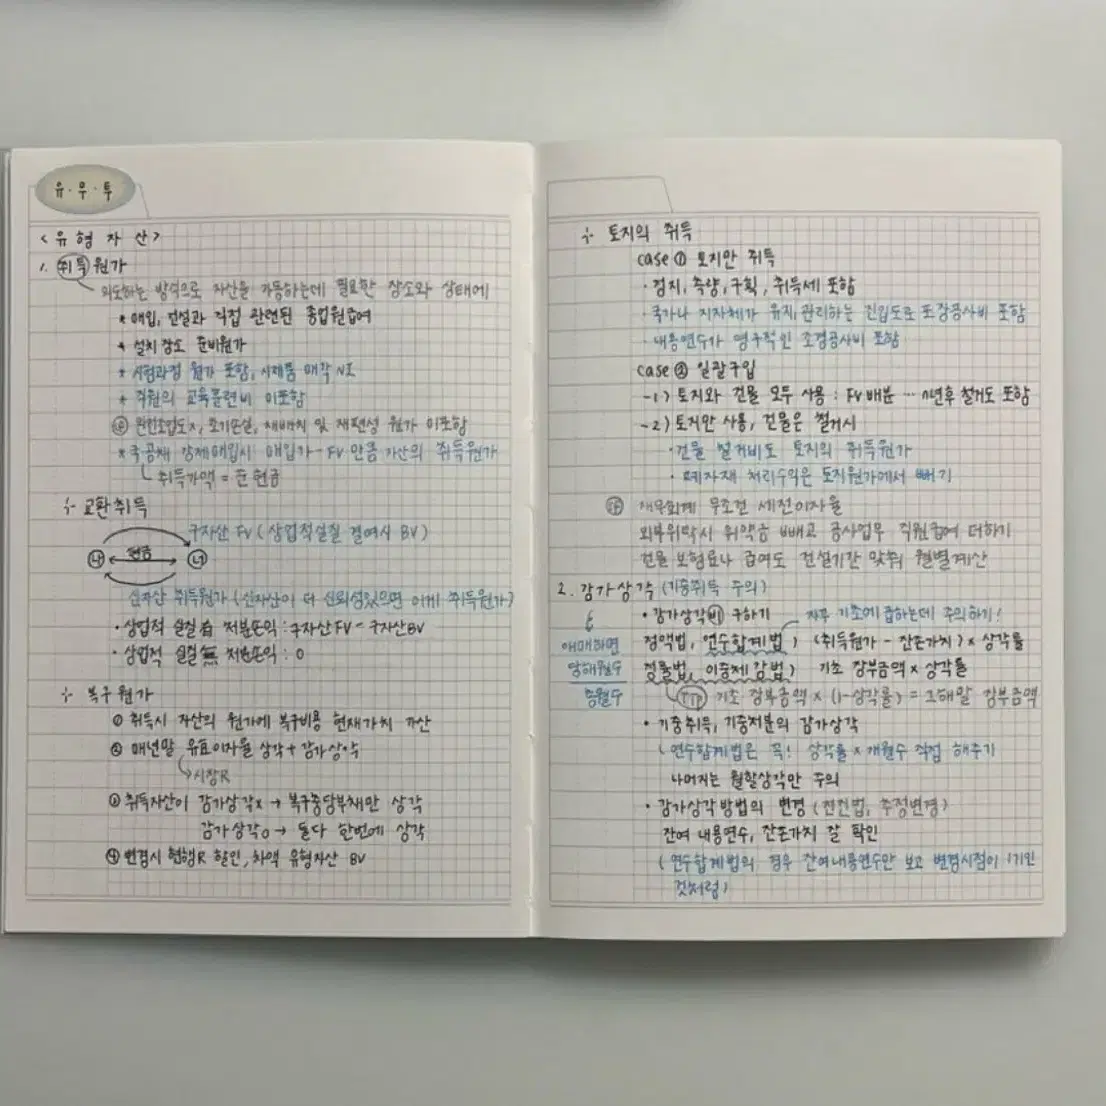 유·무·투
<유형자산>
1. 취득원가
의도하는 방식으로 자산을 가동하는데 필요한 장소와 상태에
* 매입, 건설과 직접 관련된 종업원급여
* 설치장소 준비원가
* 시험과정 원가 포함, 시제품 매각 NI
* 직원의 교육훈련비 미포함
완전조업도x, 초기손실, 재배치 및 재편성 원가 미포함
* 국공채 강제매입시 매입가-FV 만큼 가산의 취득원가
취득가액 = 준 현금
÷ 교환취득
구자산 FV (상업적실질 결여시 BV)
나 현금 너
신자산 취득원가 (신자산이 더 신뢰성있으면 이게 취득원가)
· 상업적 실질 有 처분손익 : 구자산FV - 구자산BV
· 상업적 실질 無 처분손익 : 0
÷ 복구원가
① 취득시 자산의 원가에 복구비용 현재가치 가산
② 매년말 유효이자율 상각 + 감가상각
시장R
③ 취득자산이 감가상각x → 복구충당부채만 상각
감가상각o → 둘다 한번에 상각
④ 변경시 현행R 할인, 차액 유형자산 BV
÷ 토지의 취득
case ① 토지만 취득
· 검지, 측량, 구획, 취득세 포함
· 국가나 지자체가 유지, 관리하는 진입도로 포장공사비 포함
· 내용연수가 영구적인 조경공사비 포함
case ② 일괄구입
-1) 토지와 건물 모두 사용 : FV배분 … n년후 철거도 포함
-2) 토지만 사용, 건물은 철거시
· 건물 철거비도 토지의 취득원가
· 폐자재 처리수익은 토지원가에서 빼기
재무회계 무조건 세전이자율
외부위탁시 위약금 빼고 공사업무 직원급여 더하기
건물 보험료나 급여도 건설기간 맞춰 월별계산
2. 감가상각 (기중취득 주의)
· 감가상각비 구하기
자꾸 기초에 곱하는데 주의하기!
애매하면
당해월수
총월수
정액법, 연수합계법 ) (취득원가 - 잔존가치) × 상각률
정률법, 이중체감법 ) 기초 장부금액 × 상각률
TIP 기초 장부금액 × (1-상각률) = 그해말 장부금액
· 기중취득, 기중처분의 감가상각
( 연수합계법은 꼭! 상각률 × 개월수 직접 해주기
나머지는 월할상각만 주의
· 감가상각방법의 변경 (전진법, 추정변경)
잔여 내용연수, 잔존가치 잘 확인
( 연수합계법의 경우 잔여내용연수만 보고 변경시점이 1기인
것처럼)